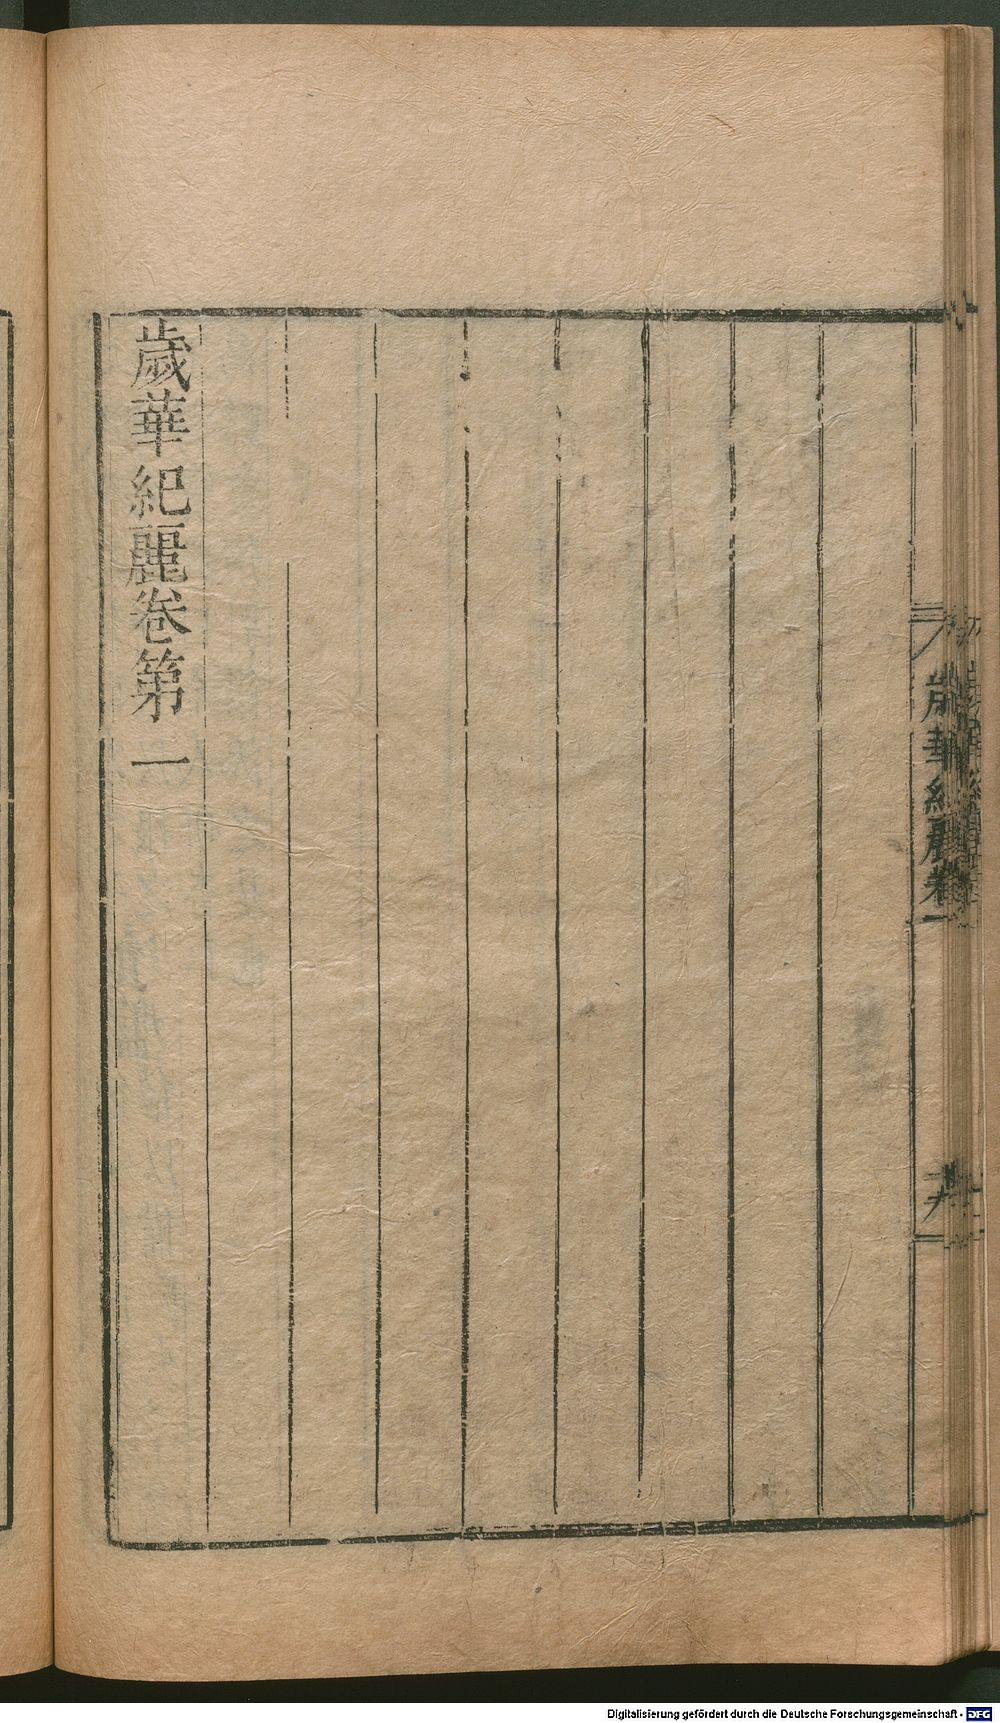 歲華紀麗卷一
歲華紀麗卷第一
Digitalisierung gefördert durch die Deutsche Forschungsgemeinschaft - DFG